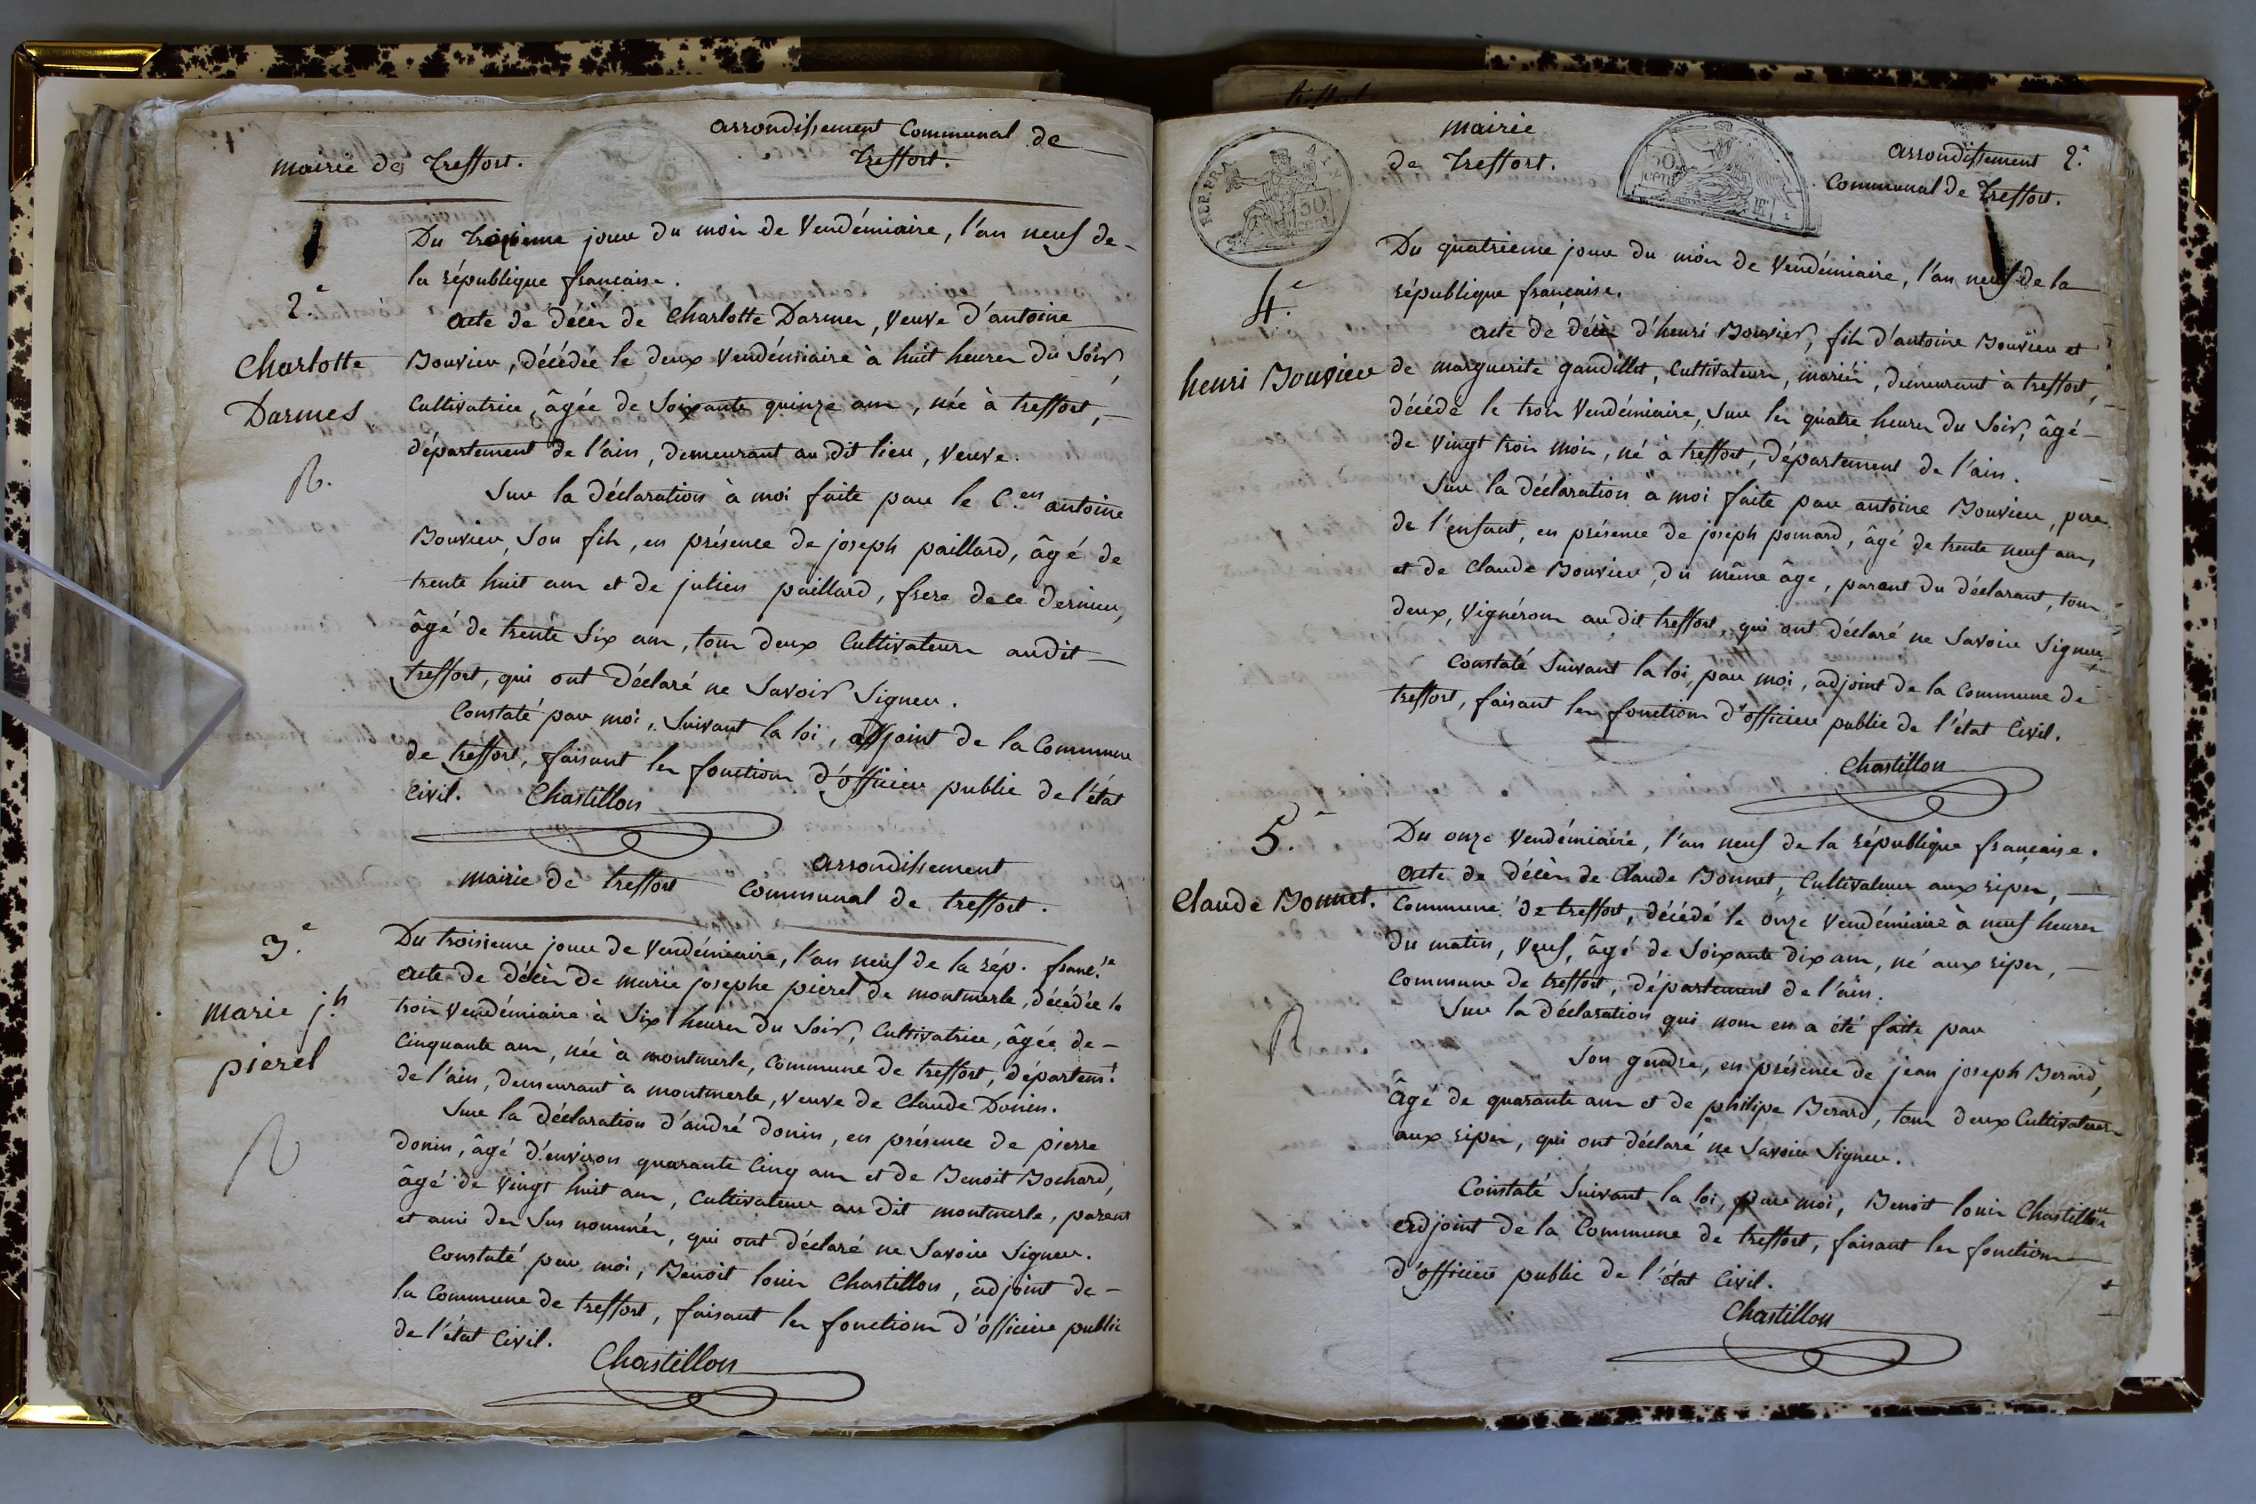 arrondissement Communal de
mairie de Treffort.
Treffort.
Du Troisieme jour du mois de Vendémiaire, l'an neuf de
la république française.
2.e
Acte de décès de Charlotte Darmes, Veuve d'antoine
Charlotte
Bouvier, décédée le deux Vendémiaire à huit heures du Soir,
Darmes
Cultivatrice, âgée de Soixante quinze ans, née à treffort,
département de l'ain, demeurant au dit lieu, Veuve.
Sur la déclaration à moi faite par le C.en antoine
Bouvier, Son fils, en présence de joseph paillard, âgé de
trente huit ans et de julien paillard, frere de ce dernier,
âgé de trente Six ans, tous deux Cultivateurs audit
treffort, qui ont déclaré ne Savoir Signer.
Constaté par moi, Suivant la loi, adjoint de la Commune
de treffort, faisant les fonctions d'officier public de l'état
Civil. Chastillon
arrondissement
mairie de treffort Communal de treffort.
3.e
Du troisieme jour de Vendémiaire, l'an neuf de la rép. franc.se
Acte de décès de marie josephe pierel de montmerle, décédée le
marie j.h
trois Vendémiaire à Six heures du Soir, Cultivatrice, âgée de
pierel
Cinquante ans, née à montmerle, Commune de treffort, départem.t
de l'ain, demeurant à montmerle, veuve de Claude Donin.
Sur la déclaration d'andré donin, en présence de pierre
donin, âgé d'environ quarante Cinq ans et de Benoit Bochard,
âgé de vingt huit ans, Cultivateurs au dit montmerle, parens
et ami des Sus nommés, qui ont déclaré ne Savoir Signer.
Constaté par moi, Benoit louis Chastillon, adjoint de
la Commune de treffort, faisant les fonctions d'officier public
de l'état Civil.
Chastillon
mairie
de Treffort.
arrondissement 2.e
Communal de Treffort.
REP. FRA
50
CENT
Du quatrieme jour du mois de Vendémiaire, l'an neuf de la
république française.
4.e
Acte de décès d'henri Bouvier, fils d'antoine Bouvier et
henri Bouvier
de marguerite gandillet, Cultivateurs, mariés, demeurant à treffort,
décédé le trois Vendémiaire, Sur les quatre heures du Soir, âgé
de vingt trois mois, né à treffort, département de l'ain.
Sur la déclaration à moi faite par antoine Bouvier, pere
de l'enfant, en présence de joseph pomard, âgé de trente neuf ans,
et de Claude Bouvier, du même âge, parent du déclarant, tous
deux, Vignérons au dit treffort, qui ont déclaré ne Savoir Signer
Constaté Suivant la loi, par moi, adjoint de la Commune de
treffort, faisant les fonctions d'officier public de l'état Civil.
Chastillon
5.e
Du onze Vendémiaire, l'an neuf de la république française.
Acte de décès de Claude Bonnet, Cultivateur aux ripes,
Claude Bonnet.
Commune de treffort, décédé le onze Vendémiaire à neuf heures
du matin, Veuf, âgé de Soixante dix ans, né aux ripes,
Commune de treffort, département de l'ain.
Sur la déclaration qui nous en a été faite par
Son gendre, en présence de jean joseph Berard,
Âgé de quarante ans et de philipe Berard, tous deux Cultivateurs
aux ripes, qui ont déclaré ne Savoir Signer.
Constaté Suivant la loi, par moi, Benoit louis Chastillon
adjoint de la Commune de treffort, faisant les fonctions
d'officier public de l'état Civil.
Chastillon